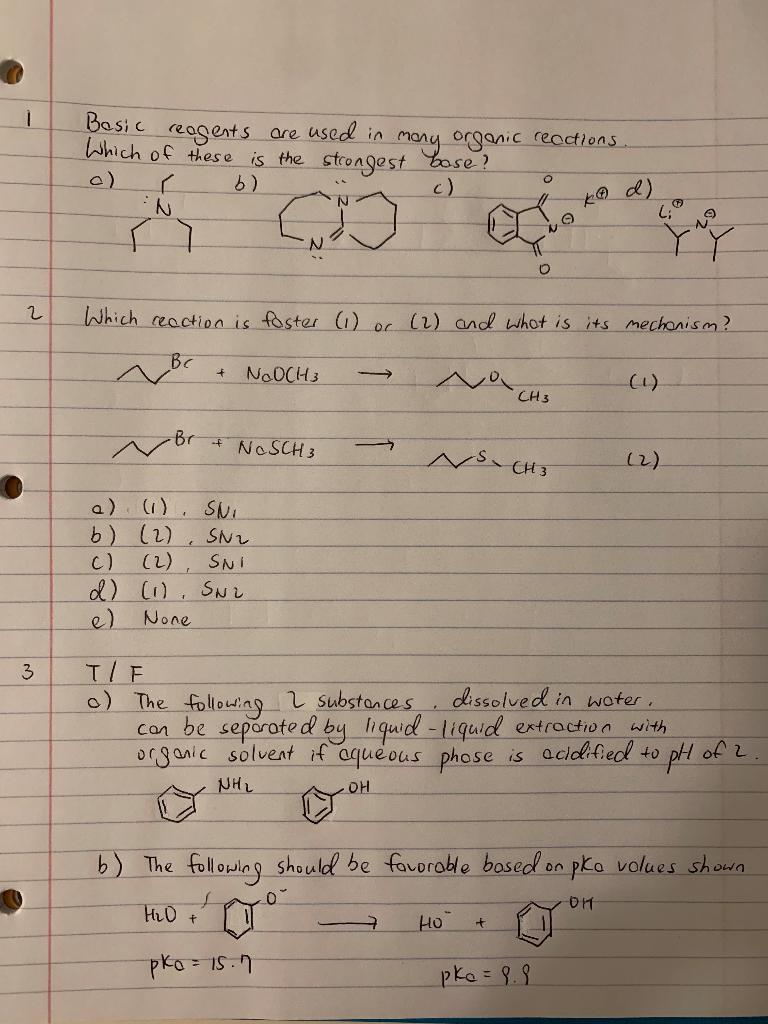 1 Basic reagents are used in many organic reactions.
Which of these is the strongest base?
a) b) c) d)
:N N N O O N⊖ K⊕ Li⊕ N⊖
2 Which reaction is faster (1) or (2) and what is its mechanism?
Br + NaOCH3 → O CH3 (1)
Br + NaSCH3 → S CH3 (2)
a) (1), SN1
b) (2), SN2
c) (2), SN1
d) (1), SN2
e) None
3 T/F
a) The following 2 substances, dissolved in water,
can be separated by liquid-liquid extraction with
organic solvent if aqueous phase is acidified to pH of 2.
NH2 OH
b) The following should be favorable based on pKa values shown
H2O + O⁻ → HO⁻ + OH
pKa = 15.7 pKa = 9.9